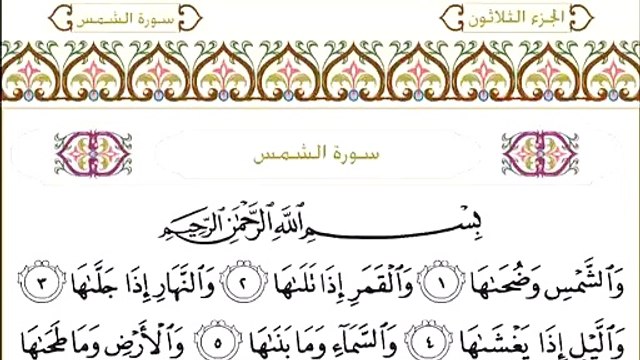 الجزء الثلاثون سورة الشمس
سورة الشمس
بِسْمِ اللَّهِ الرَّحْمَٰنِ الرَّحِيمِ
وَالشَّمْسِ وَضُحَىٰهَا ١ وَالْقَمَرِ إِذَا تَلَىٰهَا ٢ وَالنَّهَارِ إِذَا جَلَّىٰهَا ٣
وَالَّيْلِ إِذَا يَغْشَىٰهَا ٤ وَالسَّمَآءِ وَمَا بَنَىٰهَا ٥ وَالْأَرْضِ وَمَا طَحَىٰهَا